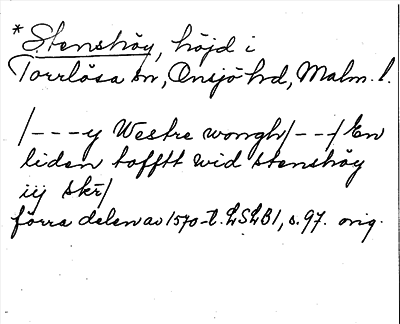 *Stenshöy, höjd i
Torrlösa sn, Onsjö hd, Malm. l.
/---y Westre wongh/---/ En
liden tofftt wid stenshöy
iij skr/
förra delen av 1570-t. LSLB1, s. 97. orig.